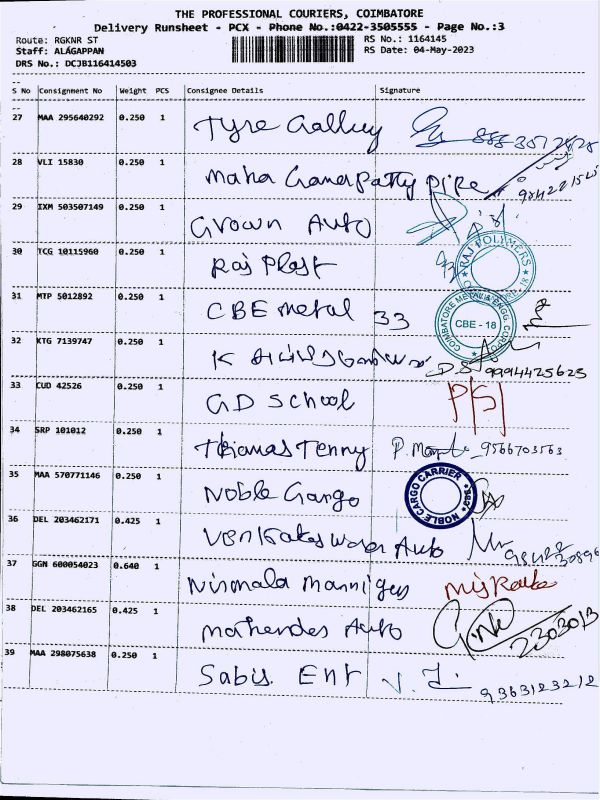 THE PROFESSIONAL COURIERS, COIMBATORE
Delivery Runsheet - PCX - Phone No.:0422-3505555 - Page No.:3
Route: RGKNR ST RS No.: 1164145
Staff: ALAGAPPAN RS Date: 04-May-2023
DRS No.: DCJB116414503
S No Consignment No Weight PCS Consignee Details Signature
27 MAA 295640292 0.250 1 Tyre Gallery
28 VLI 15830 0.250 1 Maha Ganapathy Pipe
29 IXM 503507149 0.250 1 Crown Auto
30 TCG 10115960 0.250 1 Raj Plast
RAJ POLYMERS
31 MTP 5012892 0.250 1 CBE Metal 33
COIMBATORE METAL & ENGG. CORPO
CBE - 18
32 KTG 7139747 0.250 1 K 9994425623
33 CUD 42526 0.250 1 GD School
34 SRP 101012 0.250 1 Thomas Jenny 9566703563
35 MAA 570771146 0.250 1 Noble Cargo
NOBLE CARGO CARRIER
36 DEL 203462171 0.425 1 Venkateswara Auto
37 GGN 600054023 0.640 1 Nirmala Misroute
38 DEL 203462165 0.425 1 Mahendes Auto 2303013
39 MAA 298075638 0.250 1 Sabis. Ent 9363123212